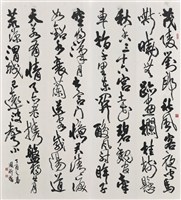 茂陵劉郎秋風客夜聞馬
嘶曉無跡畫欄桂樹懸
秋香三十六宮土花碧魏官牽
車指千里東關酸風射眸子
空將漢月出宮門憶君清淚
如鉛水衰蘭送客咸陽道
天若有情天亦老攜盤獨出月
荒涼渭城已遠波聲小